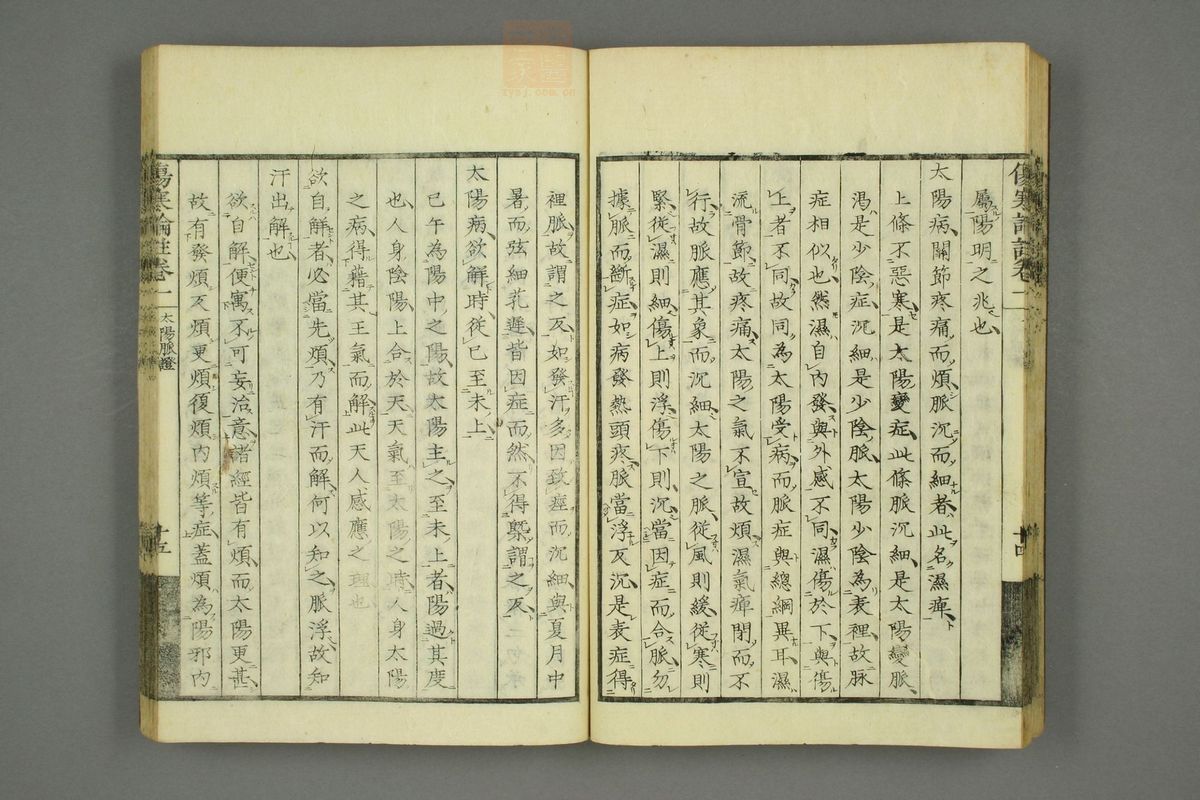 傷寒論註卷一
十四
屬陽明之兆也
太陽病關節疼痛而煩脈沉而細者此名濕痺
上條不惡寒是太陽變症此條脈沉細是太陽變脈
渴是少陰症沉細是少陰脈太陽少陰為表裡故脉
症相似也然濕自內發與外感不同濕傷於下與傷
上者不同故同為太陽受病而脈症與總綱異耳濕
流骨節故疼痛太陽之氣不宣故煩濕氣痺閉而不
行故脈應其象而沉細太陽之脈從風則緩從寒則
緊從濕則細傷上則浮傷下則沉當因症而合脈勿
據脈而斷症如病發熱頭疼脈當浮反沉是表症得
裡脈故謂之反如發汗多因致痙而沉細與夏月中
暑而弦細芤遲皆因症而然不得槩謂之反
太陽病欲解時從巳至未上
巳午為陽中之陽故太陽主之至未上者陽過其度
也人身陰陽上合於天天氣至太陽之時人身太陽
之病得藉其王氣而解此天人感應之理也
欲自解者必當先煩乃有汗而解何以知之脈浮故知
汗出解也
欲自解便寓不可妄治意諸經皆有煩而太陽更甚
故有發煩反煩更煩復煩內煩等症蓋煩為陽邪內
傷寒論註卷一
太陽脈證
十五
zysj.com.cn